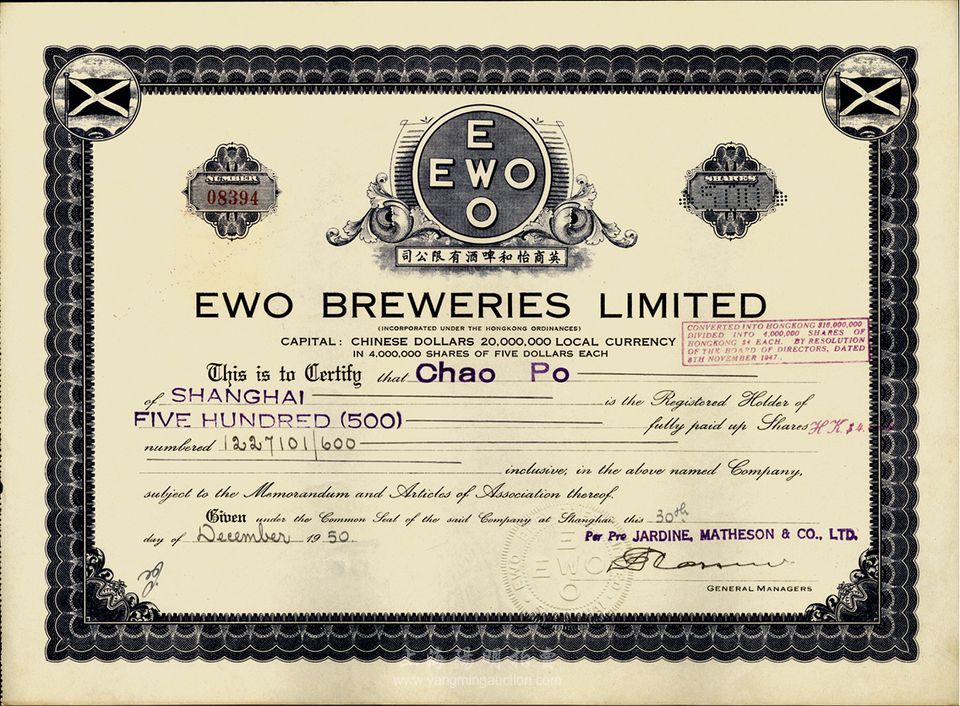 NUMBER
08394
E
EWO
O
SHARES
500
司公限有酒啤和怡商英
EWO BREWERIES LIMITED
(INCORPORATED UNDER THE HONGKONG ORDINANCES)
CAPITAL: CHINESE DOLLARS 20,000,000 LOCAL CURRENCY
IN 4,000,000 SHARES OF FIVE DOLLARS EACH
CONVERTED INTO HONGKONG $16,000,000
DIVIDED INTO 4,000,000 SHARES OF
HONGKONG $4 EACH. BY RESOLUTION
OF THE BOARD OF DIRECTORS, DATED
8TH NOVEMBER 1947.
This is to Certify that Chao Po
of SHANGHAI is the Registered Holder of
FIVE HUNDRED (500) fully paid up Shares HK.$4.
numbered 1227101/600
inclusive, in the above named Company,
subject to the Memorandum and Articles of Association thereof.
Given under the Common Seal of the said Company at Shanghai, this 30th
day of December 1950.
Per Pro JARDINE, MATHESON & CO., LTD.
GENERAL MANAGERS
E
EWO
O
上海陽明拍賣
www.yangmingauction.com